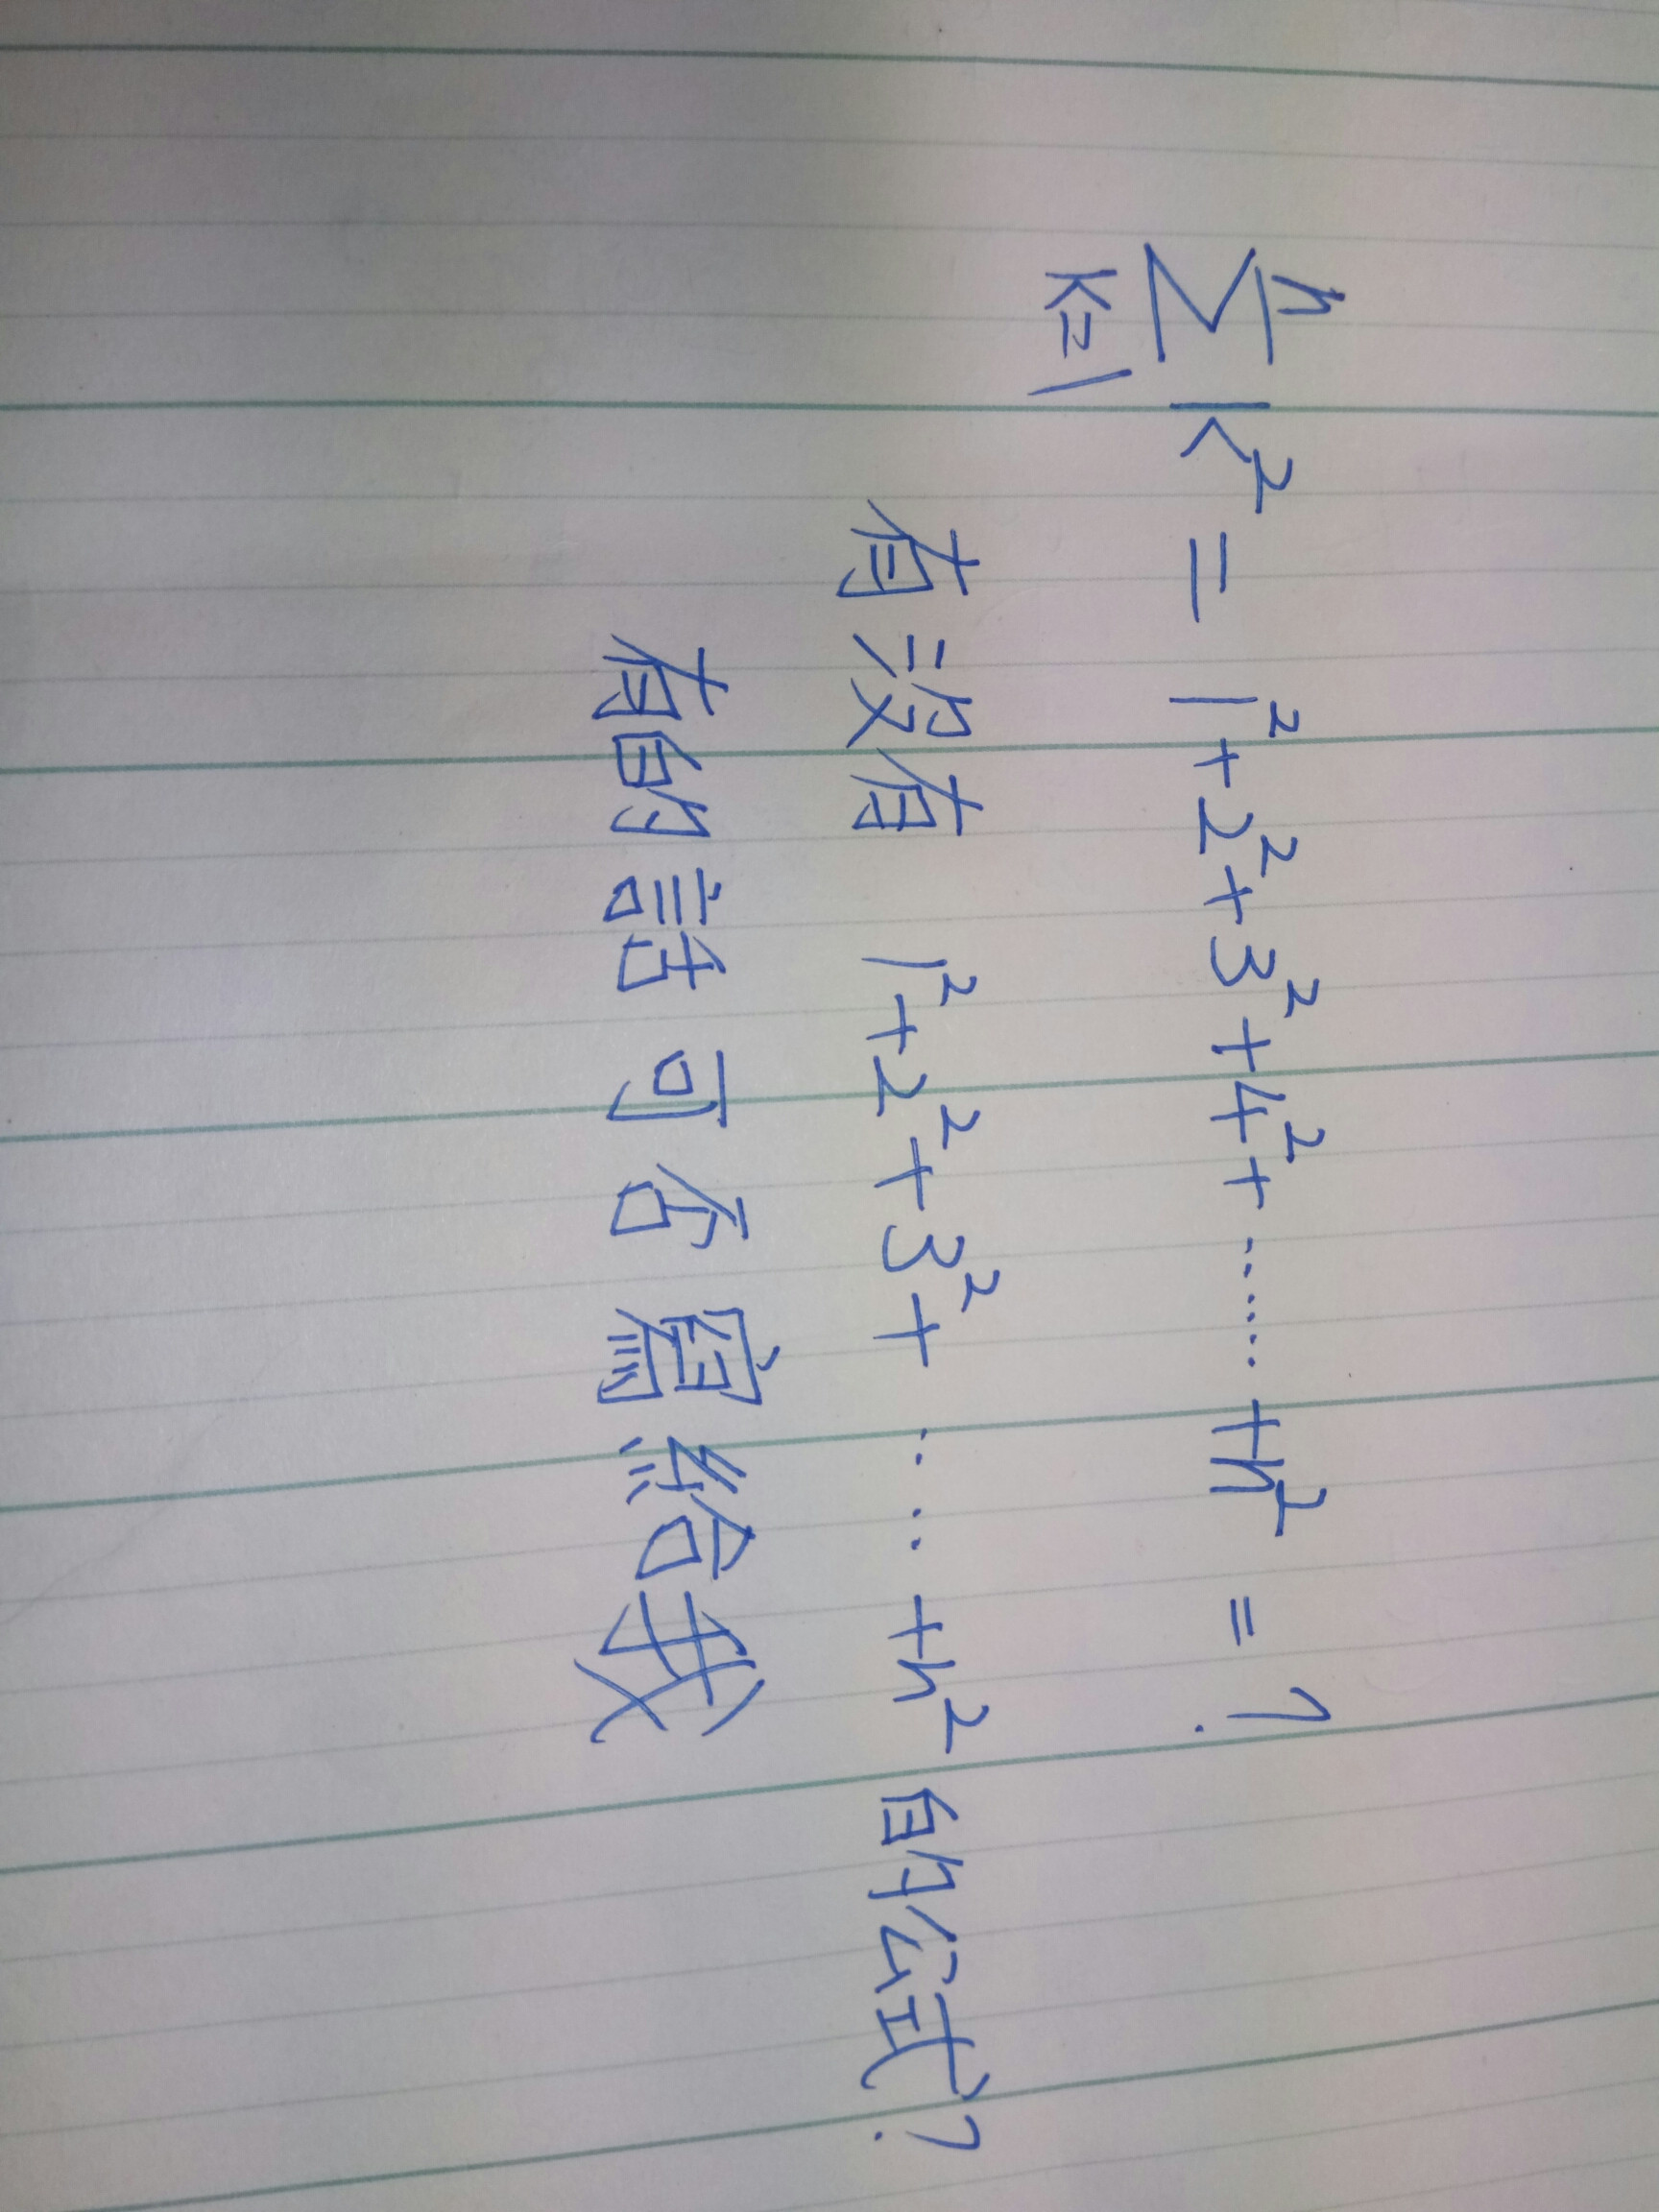 $\sum_{k=1}^{n} k^2 = 1^2+2^2+3^2+4^2+\cdots\cdots+n^2 = ?$
有沒有 $1^2+2^2+3^2+\cdots\cdots+n^2$ 的公式?
有的話可否寫給我